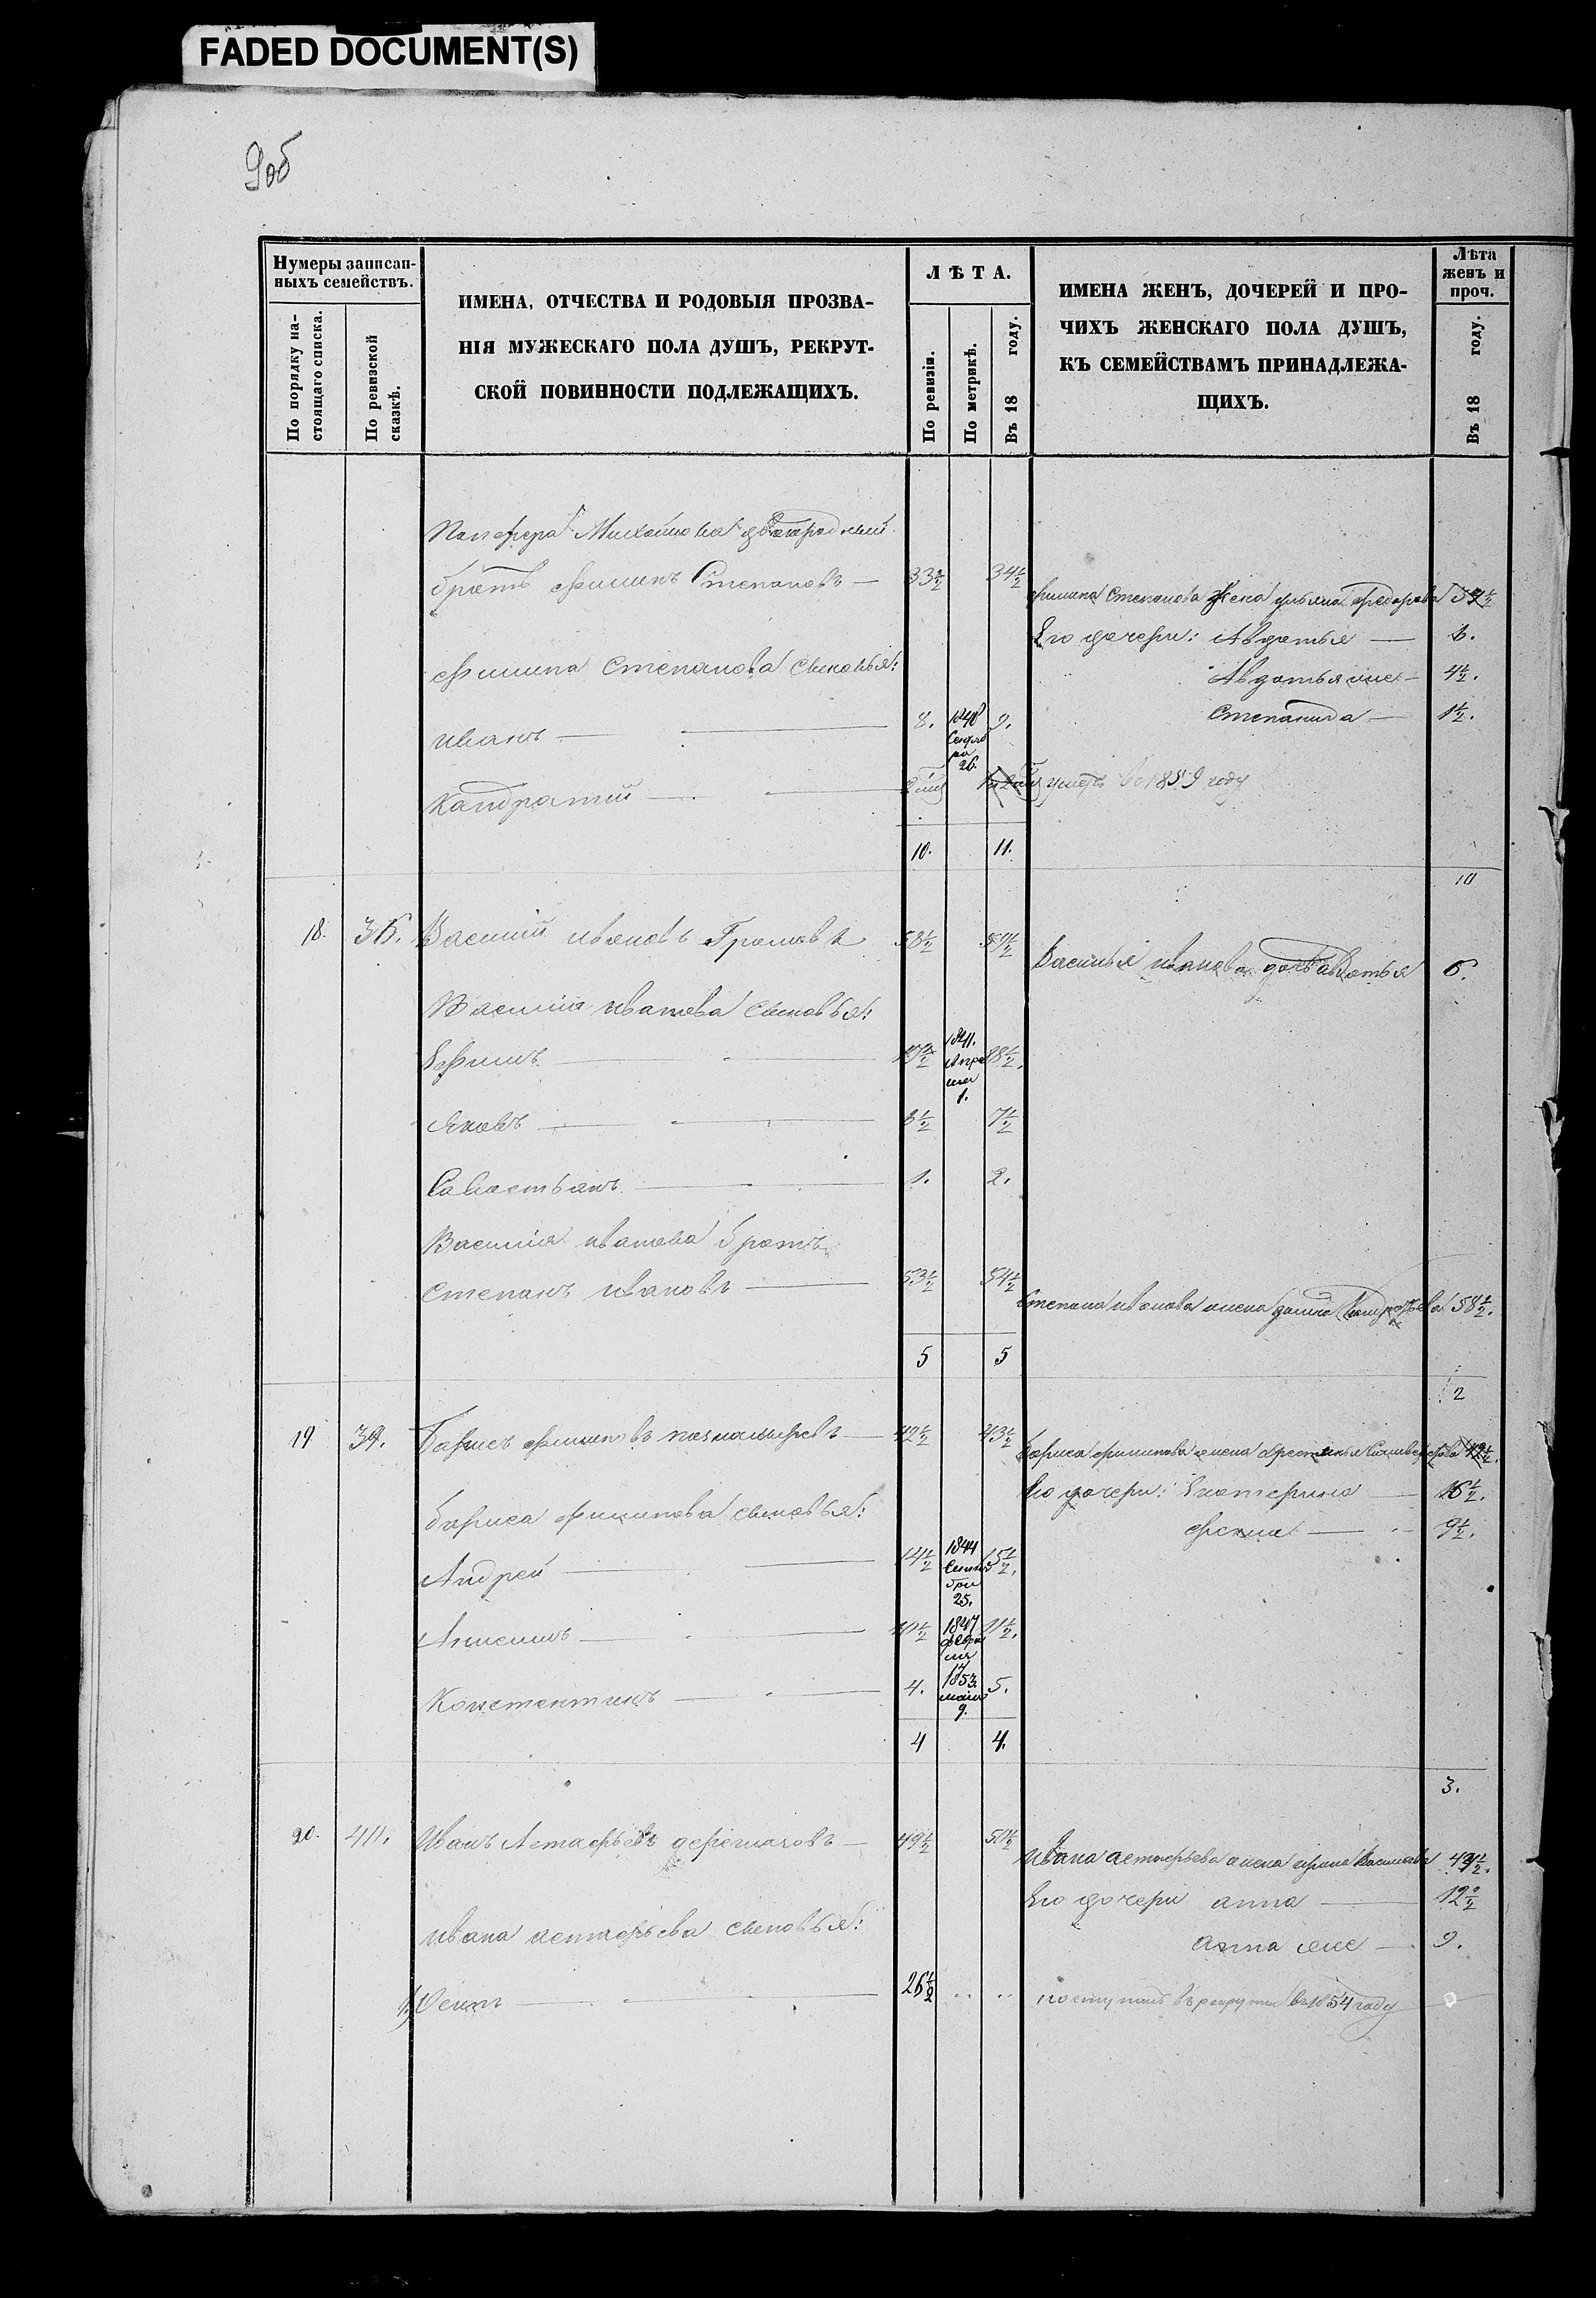 FADED DOCUMENT(S)
9об
Нумеры записан-
ныхъ семействъ.
По порядку на-
стоящаго списка.
По ревизской
сказкѣ.
ИМЕНА, ОТЧЕСТВА И РОДОВЫЯ ПРОЗВА-
НІЯ МУЖЕСКАГО ПОЛА ДУШЪ, РЕКРУТ-
СКОЙ ПОВИННОСТИ ПОДЛЕЖАЩИХЪ.
ЛѢТА.
По ревизіи.
По метрикѣ.
Въ 18 году.
ИМЕНА ЖЕНЪ, ДОЧЕРЕЙ И ПРО-
ЧИХЪ ЖЕНСКАГО ПОЛА ДУШЪ,
КЪ СЕМЕЙСТВАМЪ ПРИНАДЛЕЖА-
ЩИХЪ.
Лѣта
женъ и
проч.
Въ 18 году.
Михайлова двоюродный
братъ Филипъ Степановъ — 33½ 34½
Филипа Степанова жена Федорова
Его дочери: Авдотья —
Филипа Степанова сыновья:
Авдотья же — 4½.
Степанида — 1½.
Иванъ — 8. 1848 Сентяб ря 26. 9.
Кандратій — умеръ въ 1859 году
10. 11.
10
18. 36. Василій Ивановъ Громовъ 58½ 59½
Василья Иванова дочь Авдотья 6.
Василія Иванова сыновья:
Ефимъ — 17½ 1841. Апре ля 1. 18½.
Яковъ — 6½ 7½
Савастьянъ — 1. 2.
Василія Иванова братъ
Степанъ Ивановъ — 53½ 54½
Степана Иванова жена 58½.
5 5
2
19 39. Борисъ Филиповъ — 42½ 43½
Бориса Филипова жена
Его дочери: Екатерина — 16½.
Бориса Филипова сыновья:
Фекла — 9½.
Андрей — 14½ 1844 Сентя бря 25. 15½.
— 10½ 1847 февра ля 11½.
Константинъ — 4. 1853. маія 9. 5.
4 4.
3.
20. 40. Иванъ Астафьевъ — 49½ 50½
Ивана Астафьева жена Васильева
Его дочери Анна — 12½
Ивана Астафьева сыновья:
Анна же — 9.
1) Осипъ — 26½ поступилъ въ рекруты въ 1854 году